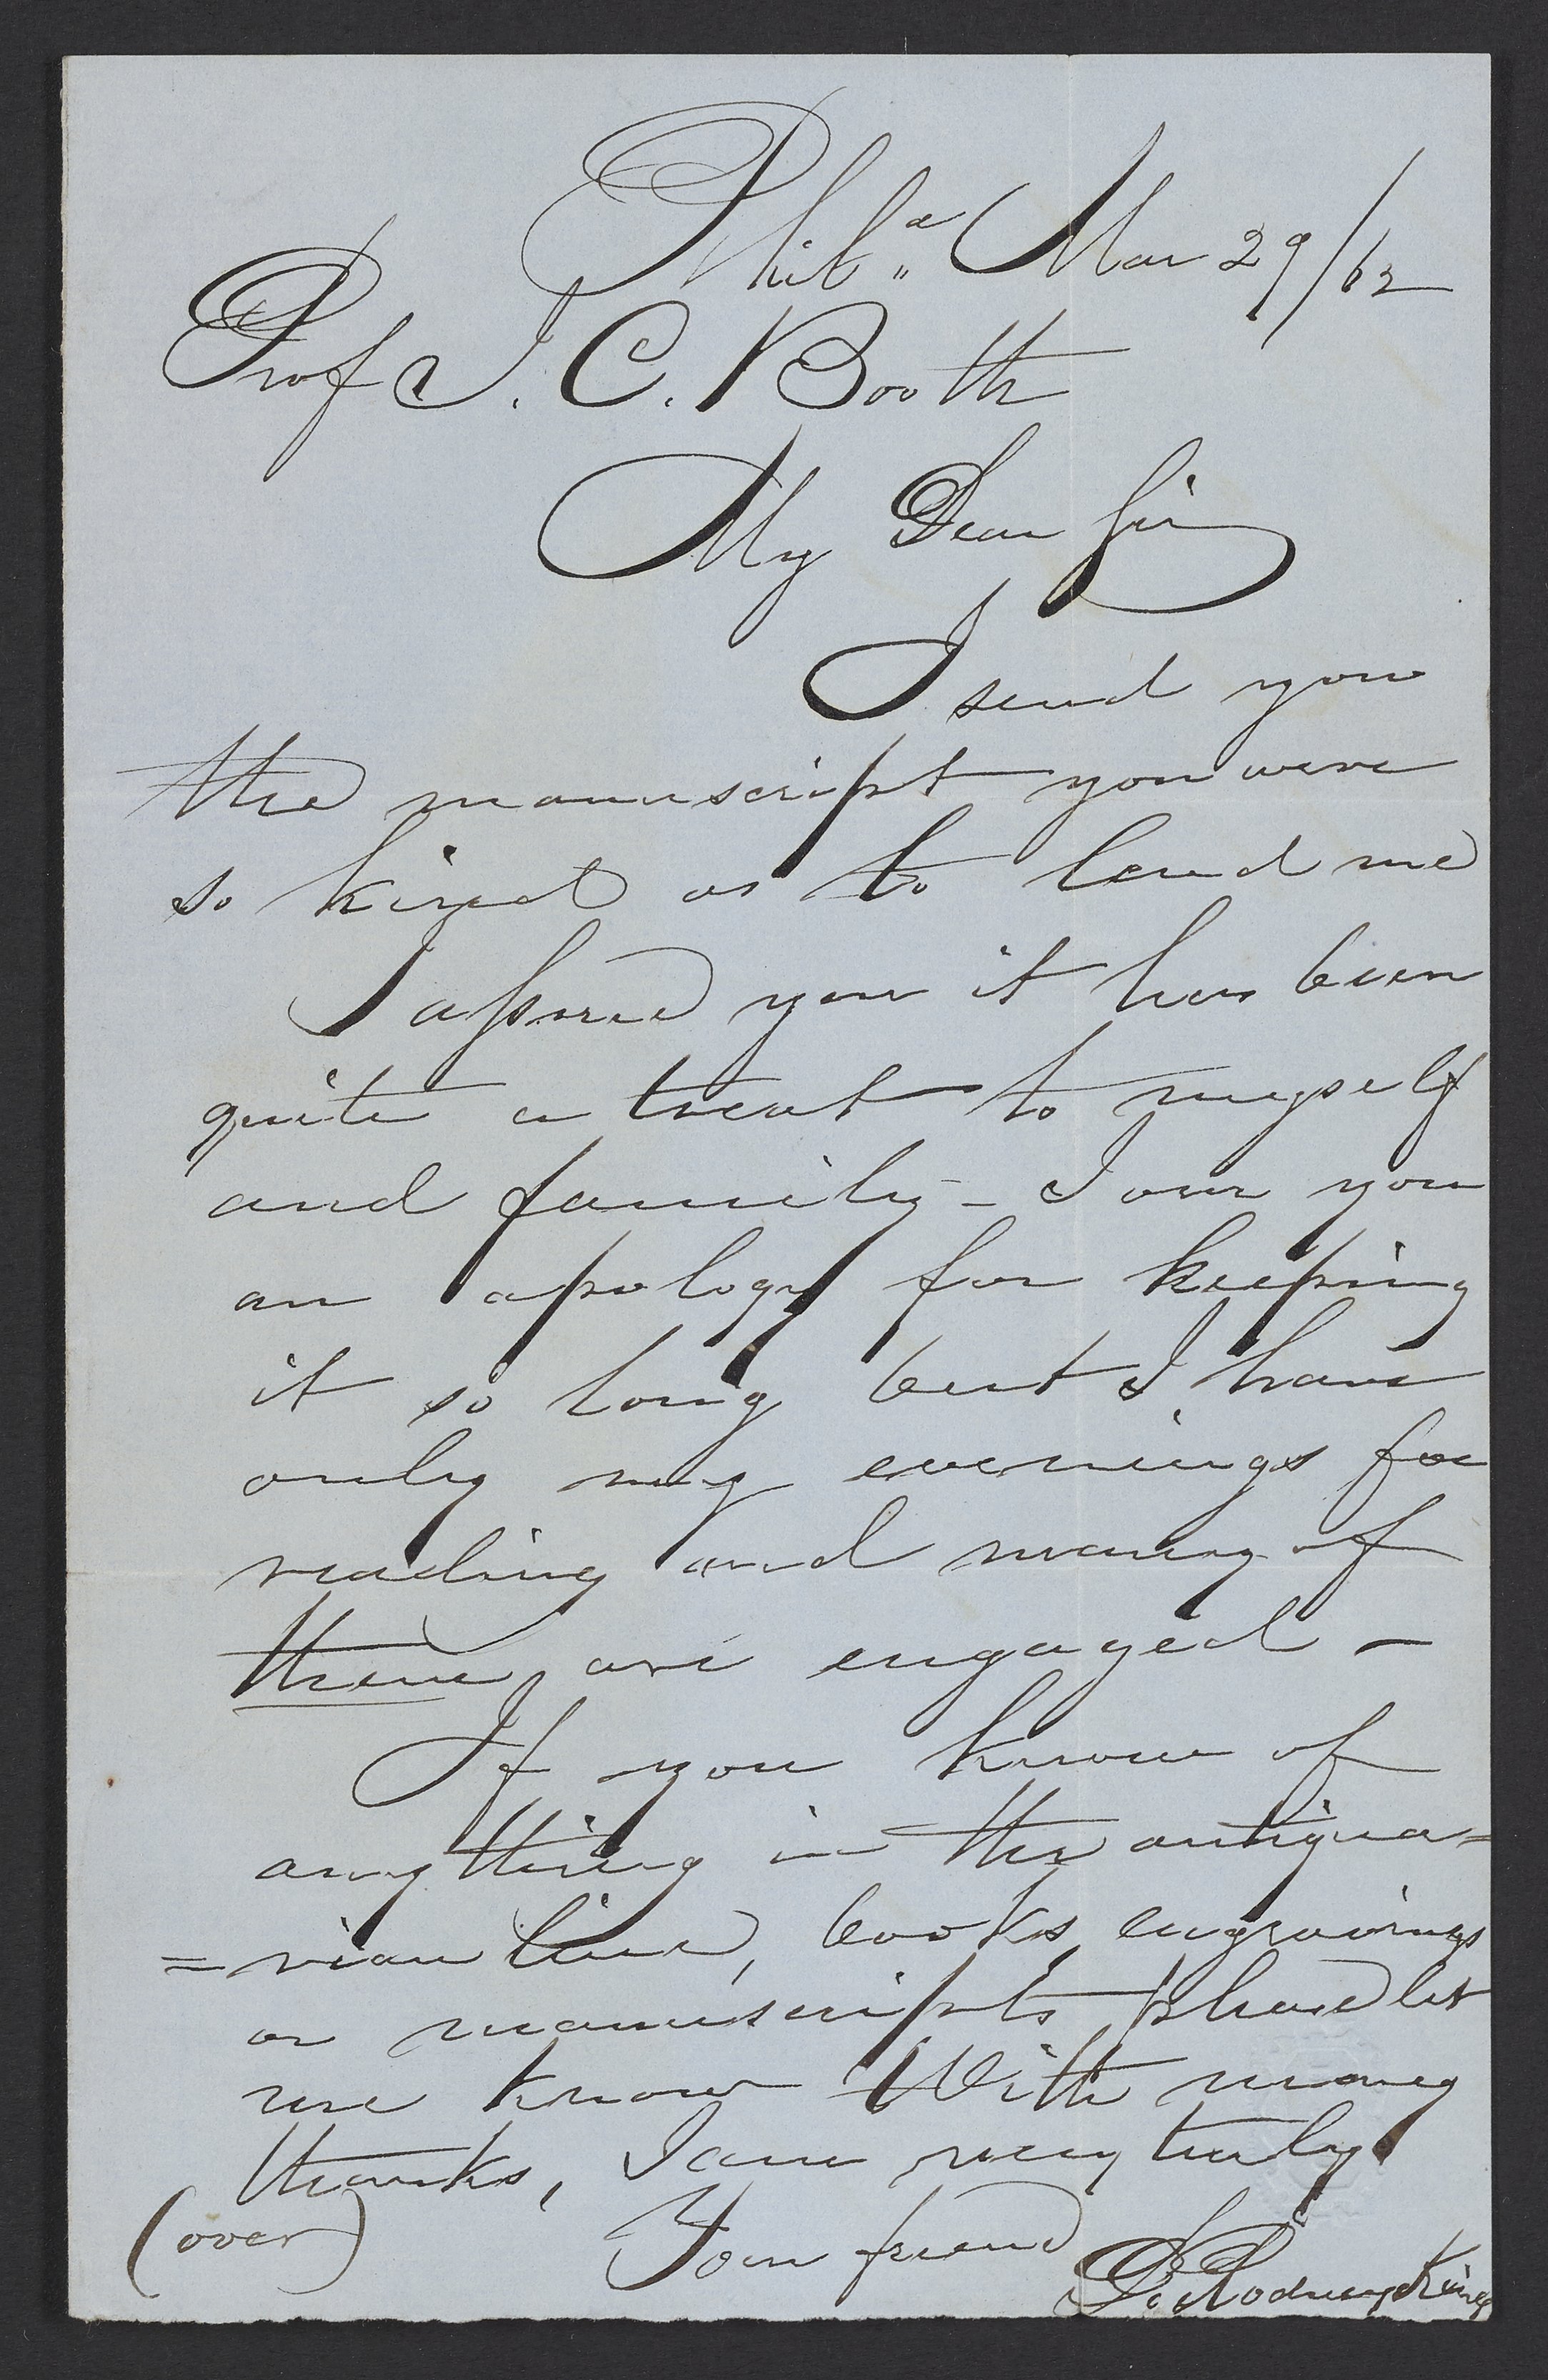 Phila Mar 29/62
Prof J. C. Booth
My Dear Sir
I send you
the manuscript you were
so kind as to lend me
I assure you it has been
quite a treat to myself
and family – I owe you
an apology for keeping
it so long but I have
only my evenings for
reading and many of
them are engaged –
If you know of
anything in the antiqua=
=rian line, books, engravings
or manuscripts please let
me know With many
thanks, I am very truly
(over) Your friend
D. Rodney King